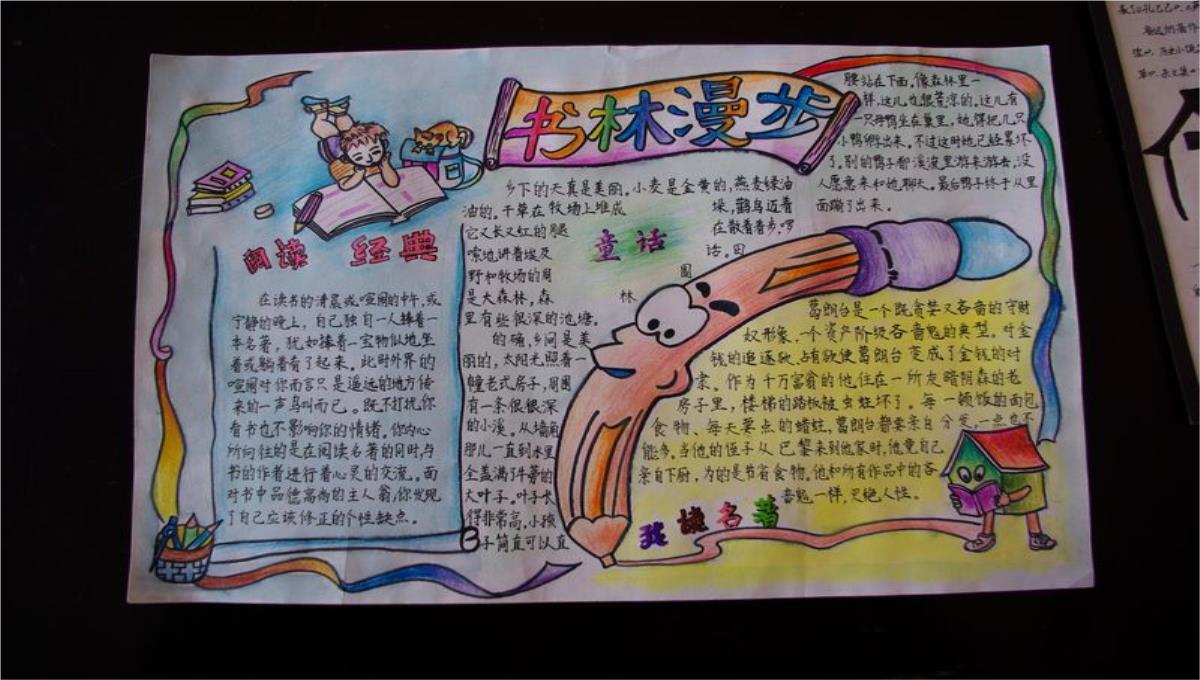 书林漫步
阅读 经典
在读书的清晨或喧闹的中午,或
宁静的晚上,自己独自一人捧着一
本名著,犹如捧着一宝物似地坐
着或躺着看了起来。此时外界的
喧闹对你而言只是遥远的地方传
来的一声鸟叫而已。既不打扰你
看书也不影响你的情绪。你内心
所向往的是在阅读名著的同时,与
书的作者进行着心灵的交流。面
对书中品德高尚的主人翁,你发现
了自己应该修正的个性缺点。
童话
乡下的天真是美丽。小麦是金黄的,燕麦绿油
油的。干草在牧场上堆成 垛,鹳鸟迈着
它又长又红的腿 在散着着步,啰
嗦地讲着埃及 话。田
野和牧场的周 围
是大森林,森 林
里有些很深的池塘。
的确,乡间是美
丽的,太阳光照着一
幢老式房子,周围
有一条很很深
的小溪。从墙角
那儿一直到水里
全盖满了牛蒡的
大叶子。叶子长
得非常高,小孩
子简直可以直
腰站在下面。像森林里一
样,这儿也很荒凉的。这儿有
一只母鸭坐在巢里,她得把几只
小鸭孵出来。不过这时她已经累坏
了。别的鸭子都溪流里游来游去,没
人愿意来和她聊天。最后鸭子终于从里
面蹦了出来。
葛朗台是一个既贪婪又吝啬的守财
奴形象,一个资产阶级吝啬鬼的典型。对金
钱的追逐欲、占有欲使葛朗台变成了金钱的对
隶。作为十万富翁的他,住在一所灰暗阴森的老
房子里,楼梯的踏板被虫蛀坏了。每一顿饭的面包
食物、每天要点的蜡蛀,葛朗台都要亲自分发,一点也不
能多。当他的侄子从巴黎来到他家时,他竟自己
亲自下厨,为的是节省食物。他和所有作品中的吝
啬鬼一样,灭绝人性。
我读名著